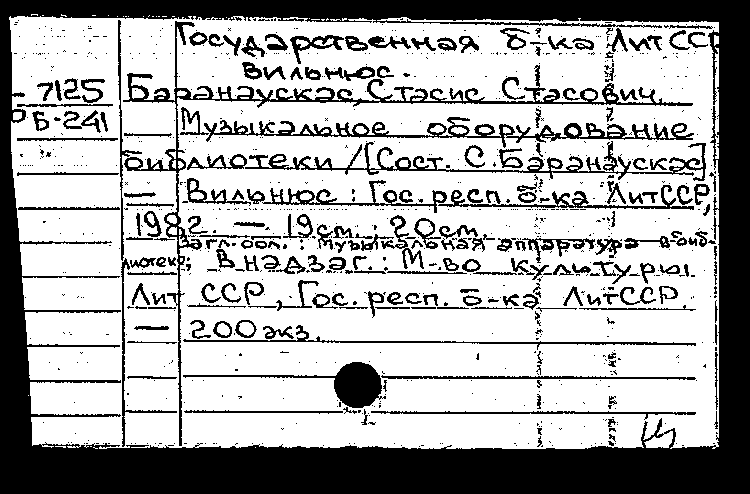 Государственная б-ка ЛитССР
Вильнюс.
- 7125 Баранаускас, Стасис Стасович.
Р Б-241 Музыкальное оборудование
библиотеки / [Сост. С. Баранаускас].
— Вильнюс : Гос. респ. б-ка ЛитССР,
1982. — 19 см. : 20 см.
Загл. обл. : Музыкальная аппаратура в биб-
лиотеке; В надзаг. : М-во культуры
Лит ССР, Гос. респ. б-ка ЛитССР.
— 200 экз.